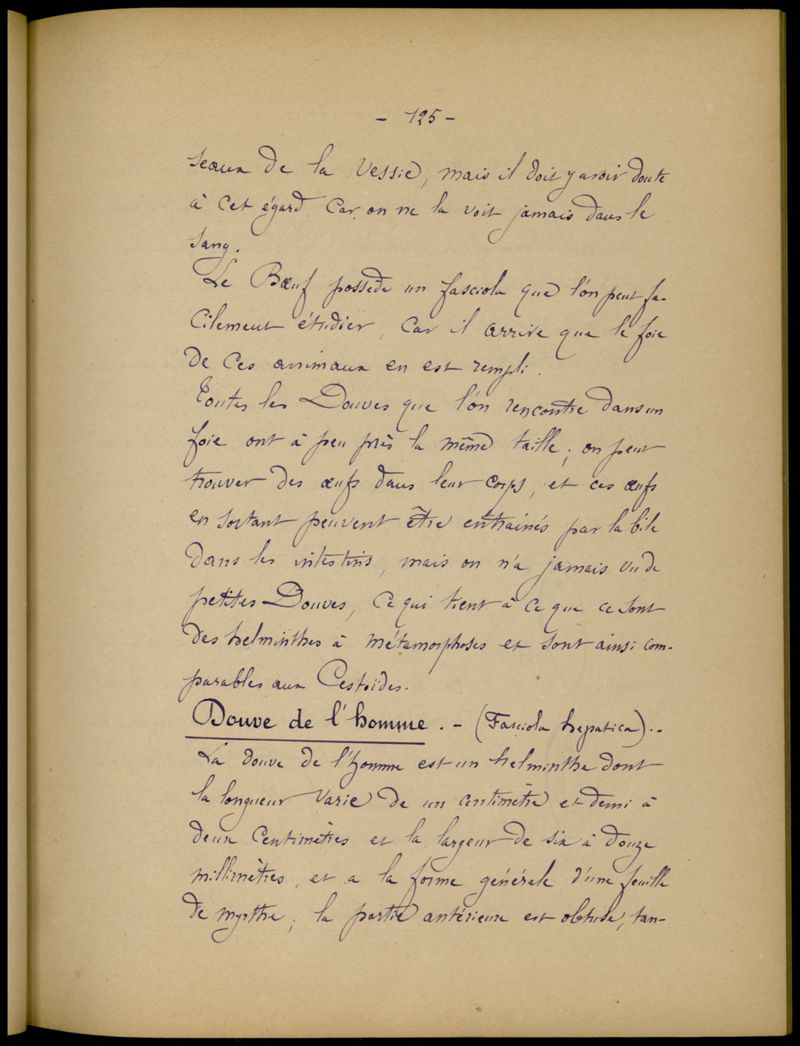 - 125 -
seaux de la vessie, mais il doit y avoir doute
à cet égard car on ne la voit jamais dans le
sang.
Le Bœuf possède un fasciola que l'on peut fa-
cilement étudier, car il arrive que le foie
de ces animaux en est rempli.
Toutes les Douves que l'on rencontre dans un
foie ont à peu près la même taille; on peut
trouver des œufs dans leur corps, et ces œufs
en sortant peuvent être entrainés par la bile
dans les intestins, mais on n'a jamais vu de
petites Douves, ce qui tient à ce que ce sont
des helminthes à métamorphoses et sont ainsi com-
parables aux Cestoïdes.
Douve de l'homme. - (Fasciola hepatica). -
La douve de l'homme est un helminthe dont
la longueur varie de un centimètre et demi à
deux centimètres et la largeur de six à douze
millimètres, et a la forme générale d'une feuille
de myrthe; la partie antérieure est obtuse, tan-